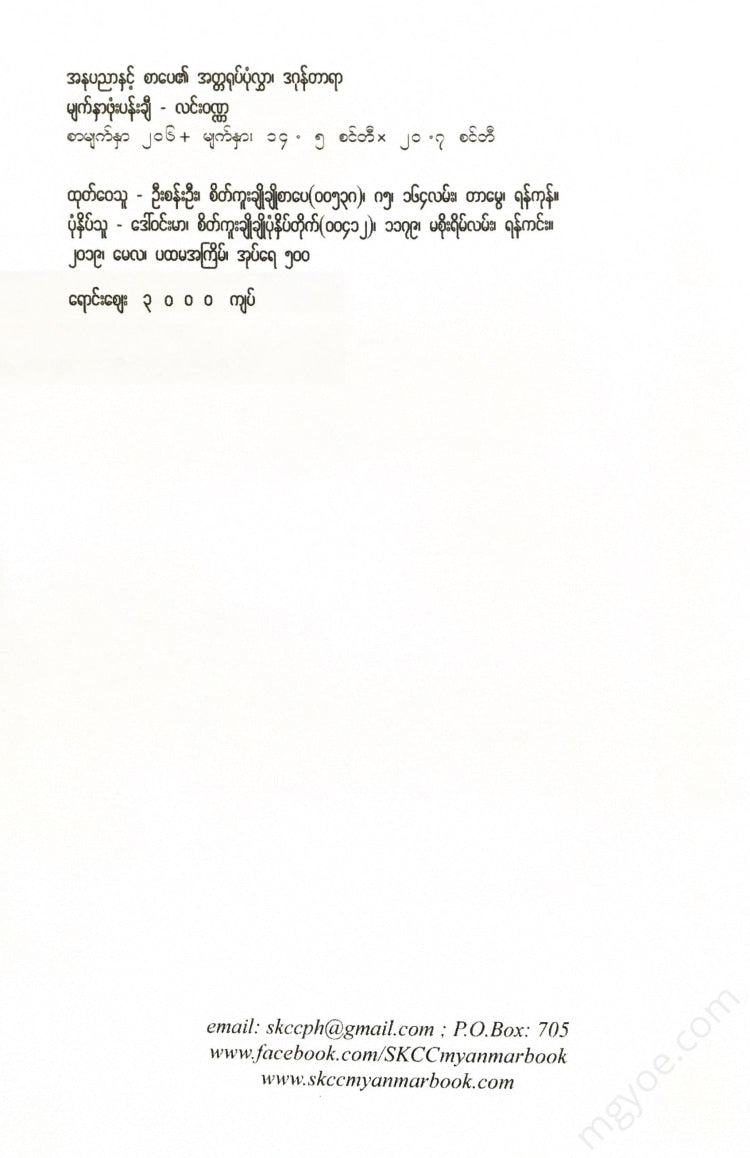 အနုပညာနှင့် စာပေ၏ အတ္တရုပ်ပုံလွှာ၊ ဒဂုန်တာရာ
မျက်နှာဖုံးပန်းချီ - လင်းဝဏ္ဏ
စာမျက်နှာ ၂၀၆+ မျက်နှာ၊ ၁၄ . ၅ စင်တီ× ၂၀ .၇ စင်တီ
ထုတ်ဝေသူ - ဦးစန်းဦး၊ စိတ်ကူးချိုချိုစာပေ(၀၀၅၃၈)၊ ဂ၅၊ ၁၆၄လမ်း၊ တာမွေ၊ ရန်ကုန်။
ပုံနှိပ်သူ - ဒေါ်ဝင်းမာ၊ စိတ်ကူးချိုချိုပုံနှိပ်တိုက်(၀၀၄၁၂)၊ ၁၁၇၉၊ မစိုးရိမ်လမ်း၊ ရန်ကင်း။
၂၀၁၉၊ မေလ၊ ပထမအကြိမ်၊ အုပ်ရေ ၅၀၀
ရောင်းဈေး ၃ ၀ ၀ ၀ ကျပ်
email: skccph@gmail.com ; P.O.Box: 705
www.facebook.com/SKCCmyanmarbook
www.skccmyanmarbook.com
mgyoe.com